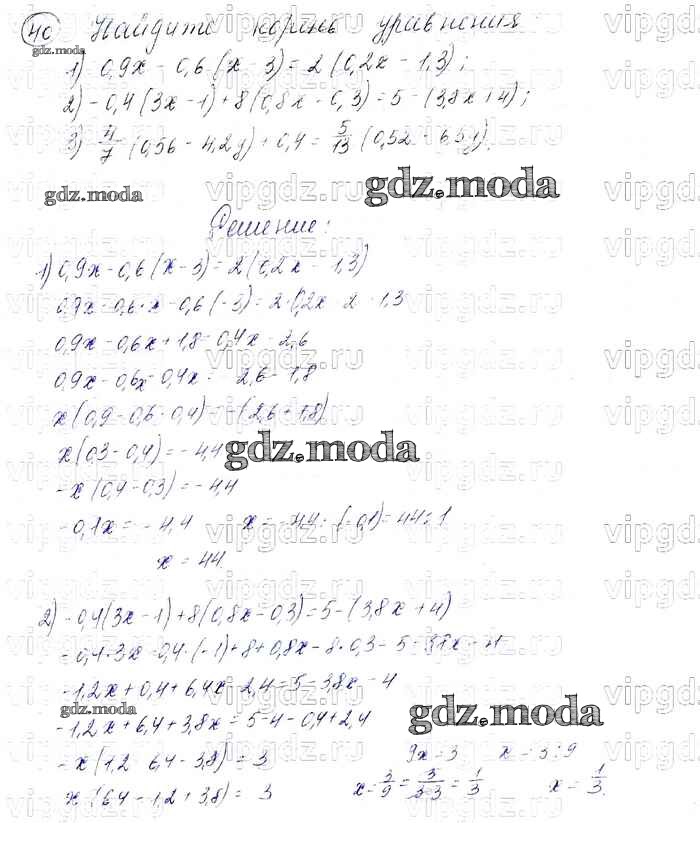 40 Найдите корень уравнения:
gdz.moda
1) 0,9x - 0,6(x - 3) = 2(0,2x - 1,3);
2) -0,4(3x - 1) + 8(0,8x - 0,3) = 5 - (3,8x + 4);
3) 4/7 (0,56 - 4,2y) + 0,4 = 5/13 (0,52 - 6,5y).
gdz.moda gdz.moda
Решение:
1) 0,9x - 0,6(x - 3) = 2(0,2x - 1,3)
0,9x - 0,6·x - 0,6(-3) = 2·0,2x - 2·1,3
0,9x - 0,6x + 1,8 - 0,4x - 2,6
0,9x - 0,6x - 0,4x = -2,6 - 1,8
x(0,9 - 0,6 - 0,4) = -(2,6 + 1,8)
x(0,3 - 0,4) = -4,4
gdz.moda
-x(0,4 - 0,3) = -4,4
-0,1x = -4,4 x = -4,4 : (-0,1) = 44 : 1
x = 44
2) -0,4(3x - 1) + 8(0,8x - 0,3) = 5 - (3,8x + 4)
-0,4·3x - 0,4·(-1) + 8·0,8x - 8·0,3 = 5 - 3,8x - 4
-1,2x + 0,4 + 6,4x - 2,4 = 5 - 3,8x - 4
gdz.moda gdz.moda
-1,2x + 6,4 + 3,8x = 5 - 4 - 0,4 + 2,4
-x(1,2 6,4 - 3,8) = 3 9x = 3 x = 3 : 9
x(6,4 - 1,2 + 3,8) = 3 x = 3/9 = 3/3·3 = 1/3 x = 1/3.
vipgdz.ru